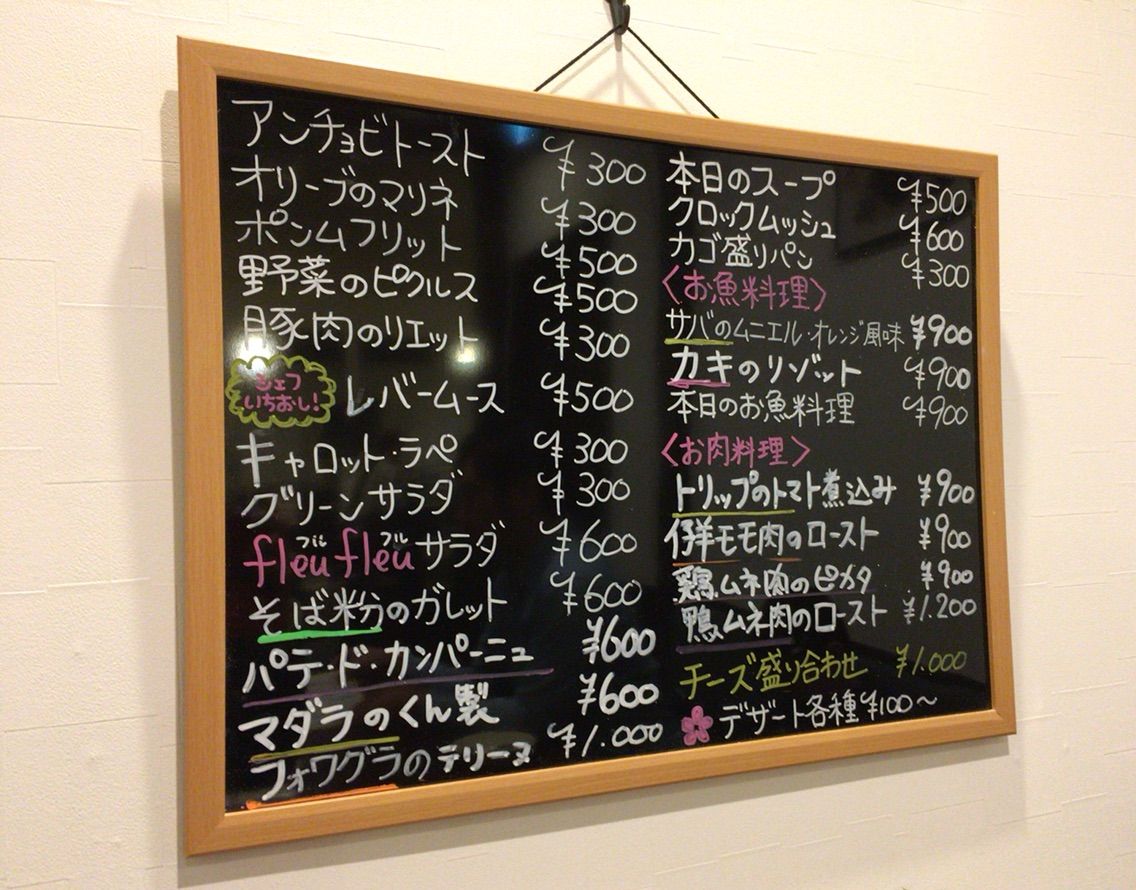 アンチョビトースト ¥300
オリーブのマリネ ¥300
ポンムフリット ¥500
野菜のピクルス ¥500
豚肉のリエット ¥300
シェフいちおし! レバームース ¥500
キャロット・ラペ ¥300
グリーンサラダ ¥300
fleu fleuサラダ ¥600
ブル ブル
そば粉のガレット ¥600
パテ・ド・カンパーニュ ¥600
マダラのくん製 ¥600
フォワグラのテリーヌ ¥1.000
本日のスープ ¥500
クロックムッシュ ¥600
カゴ盛りパン ¥300
〈お魚料理〉
サバのムニエル・オレンジ風味 ¥900
カキのリゾット ¥900
本日のお魚料理 ¥900
〈お肉料理〉
トリップのトマト煮込み ¥900
仔羊モモ肉のロースト ¥900
鶏ムネ肉のピカタ ¥900
鴨ムネ肉のロースト ¥1.200
チーズ盛り合わせ ¥1.000
デザート各種¥100〜